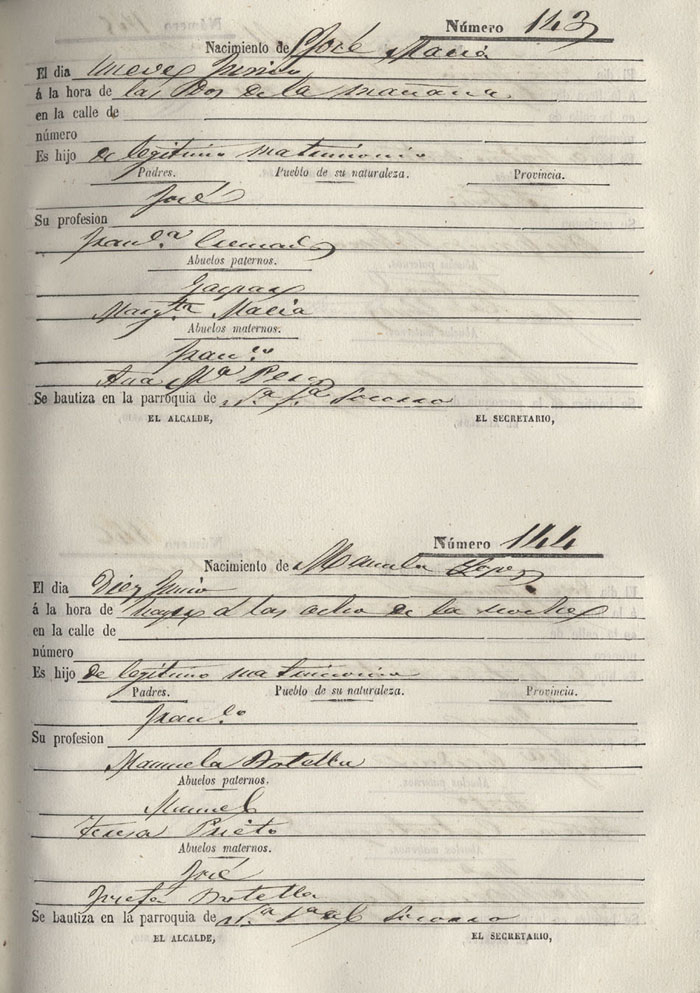 Número 143
Nacimiento de José Maciá
El dia nueve Junio
á la hora de las dos de la mañana.
en la calle de
número
Es hijo de legitimo matrimonio
Padres. Pueblo de su naturaleza. Provincia.
José
Su profesion
Fran.ca
Abuelos paternos.
Gaspar
Marg.ta Maciá
Abuelos maternos.
Fran.co
Ana M.a
Se bautiza en la parroquia de N.a S.a Socorro
EL ALCALDE, EL SECRETARIO,
Número 144
Nacimiento de Manuela Lopez
El dia Diez Junio
á la hora de las ocho de la noche
en la calle de
número
Es hijo de legitimo matrimonio
Padres. Pueblo de su naturaleza. Provincia.
Fran.co
Su profesion
Manuela Botella
Abuelos paternos.
Manuel
Teresa Prieto
Abuelos maternos.
José
Josefa Botella
Se bautiza en la parroquia de N.a S.a del Socorro
EL ALCALDE, EL SECRETARIO,